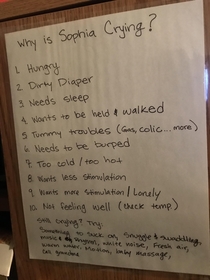 Why is Sophia Crying?
1. Hungry
2. Dirty Diaper
3. Needs sleep
4. Wants to be held & walked
5. Tummy troubles (Gas, colic... more)
6. Needs to be burped
7. Too cold / too hot
8. Wants less stimulation
9. Wants more stimulation / Lonely
10. Not feeling well (check temp)
Still Crying? Try:
Something to suck on, Snuggle & swaddling,
music & rhythm, white noise, Fresh air,
warm water, Motion, baby massage,